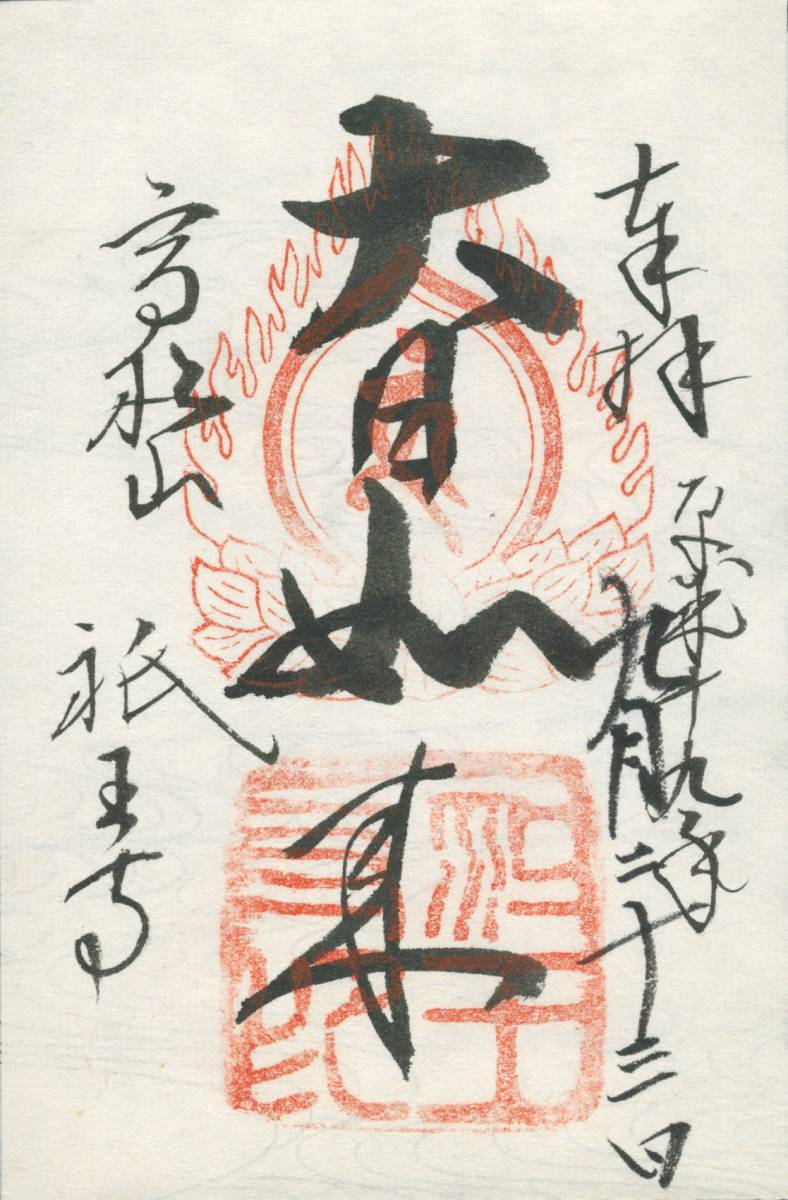 奉拝
平成十九年
九月二十三日
大日如来
高松山
祇王寺